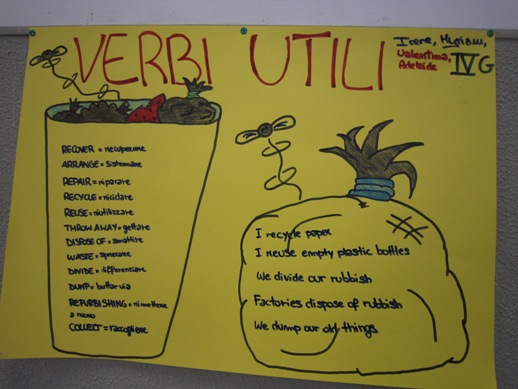 VERBI UTILI
Irene, Myriam,
Valentina,
Adelaide IV G
RECOVER = recuperare
ARRANGE = Sistemare
REPAIR = riparare
RECYCLE = riciclare
REUSE = riutilizzare
THROW AWAY = gettare
DISPOSE OF = smaltire
WASTE = sprecare
DIVIDE = differenziare
DUMP = buttar via
REFURBISHING = rimettere
a nuovo
COLLECT = raccogliere
I recycle paper
I reuse empty plastic bottles
We divide our rubbish
Factories dispose of rubbish
We dump our old things